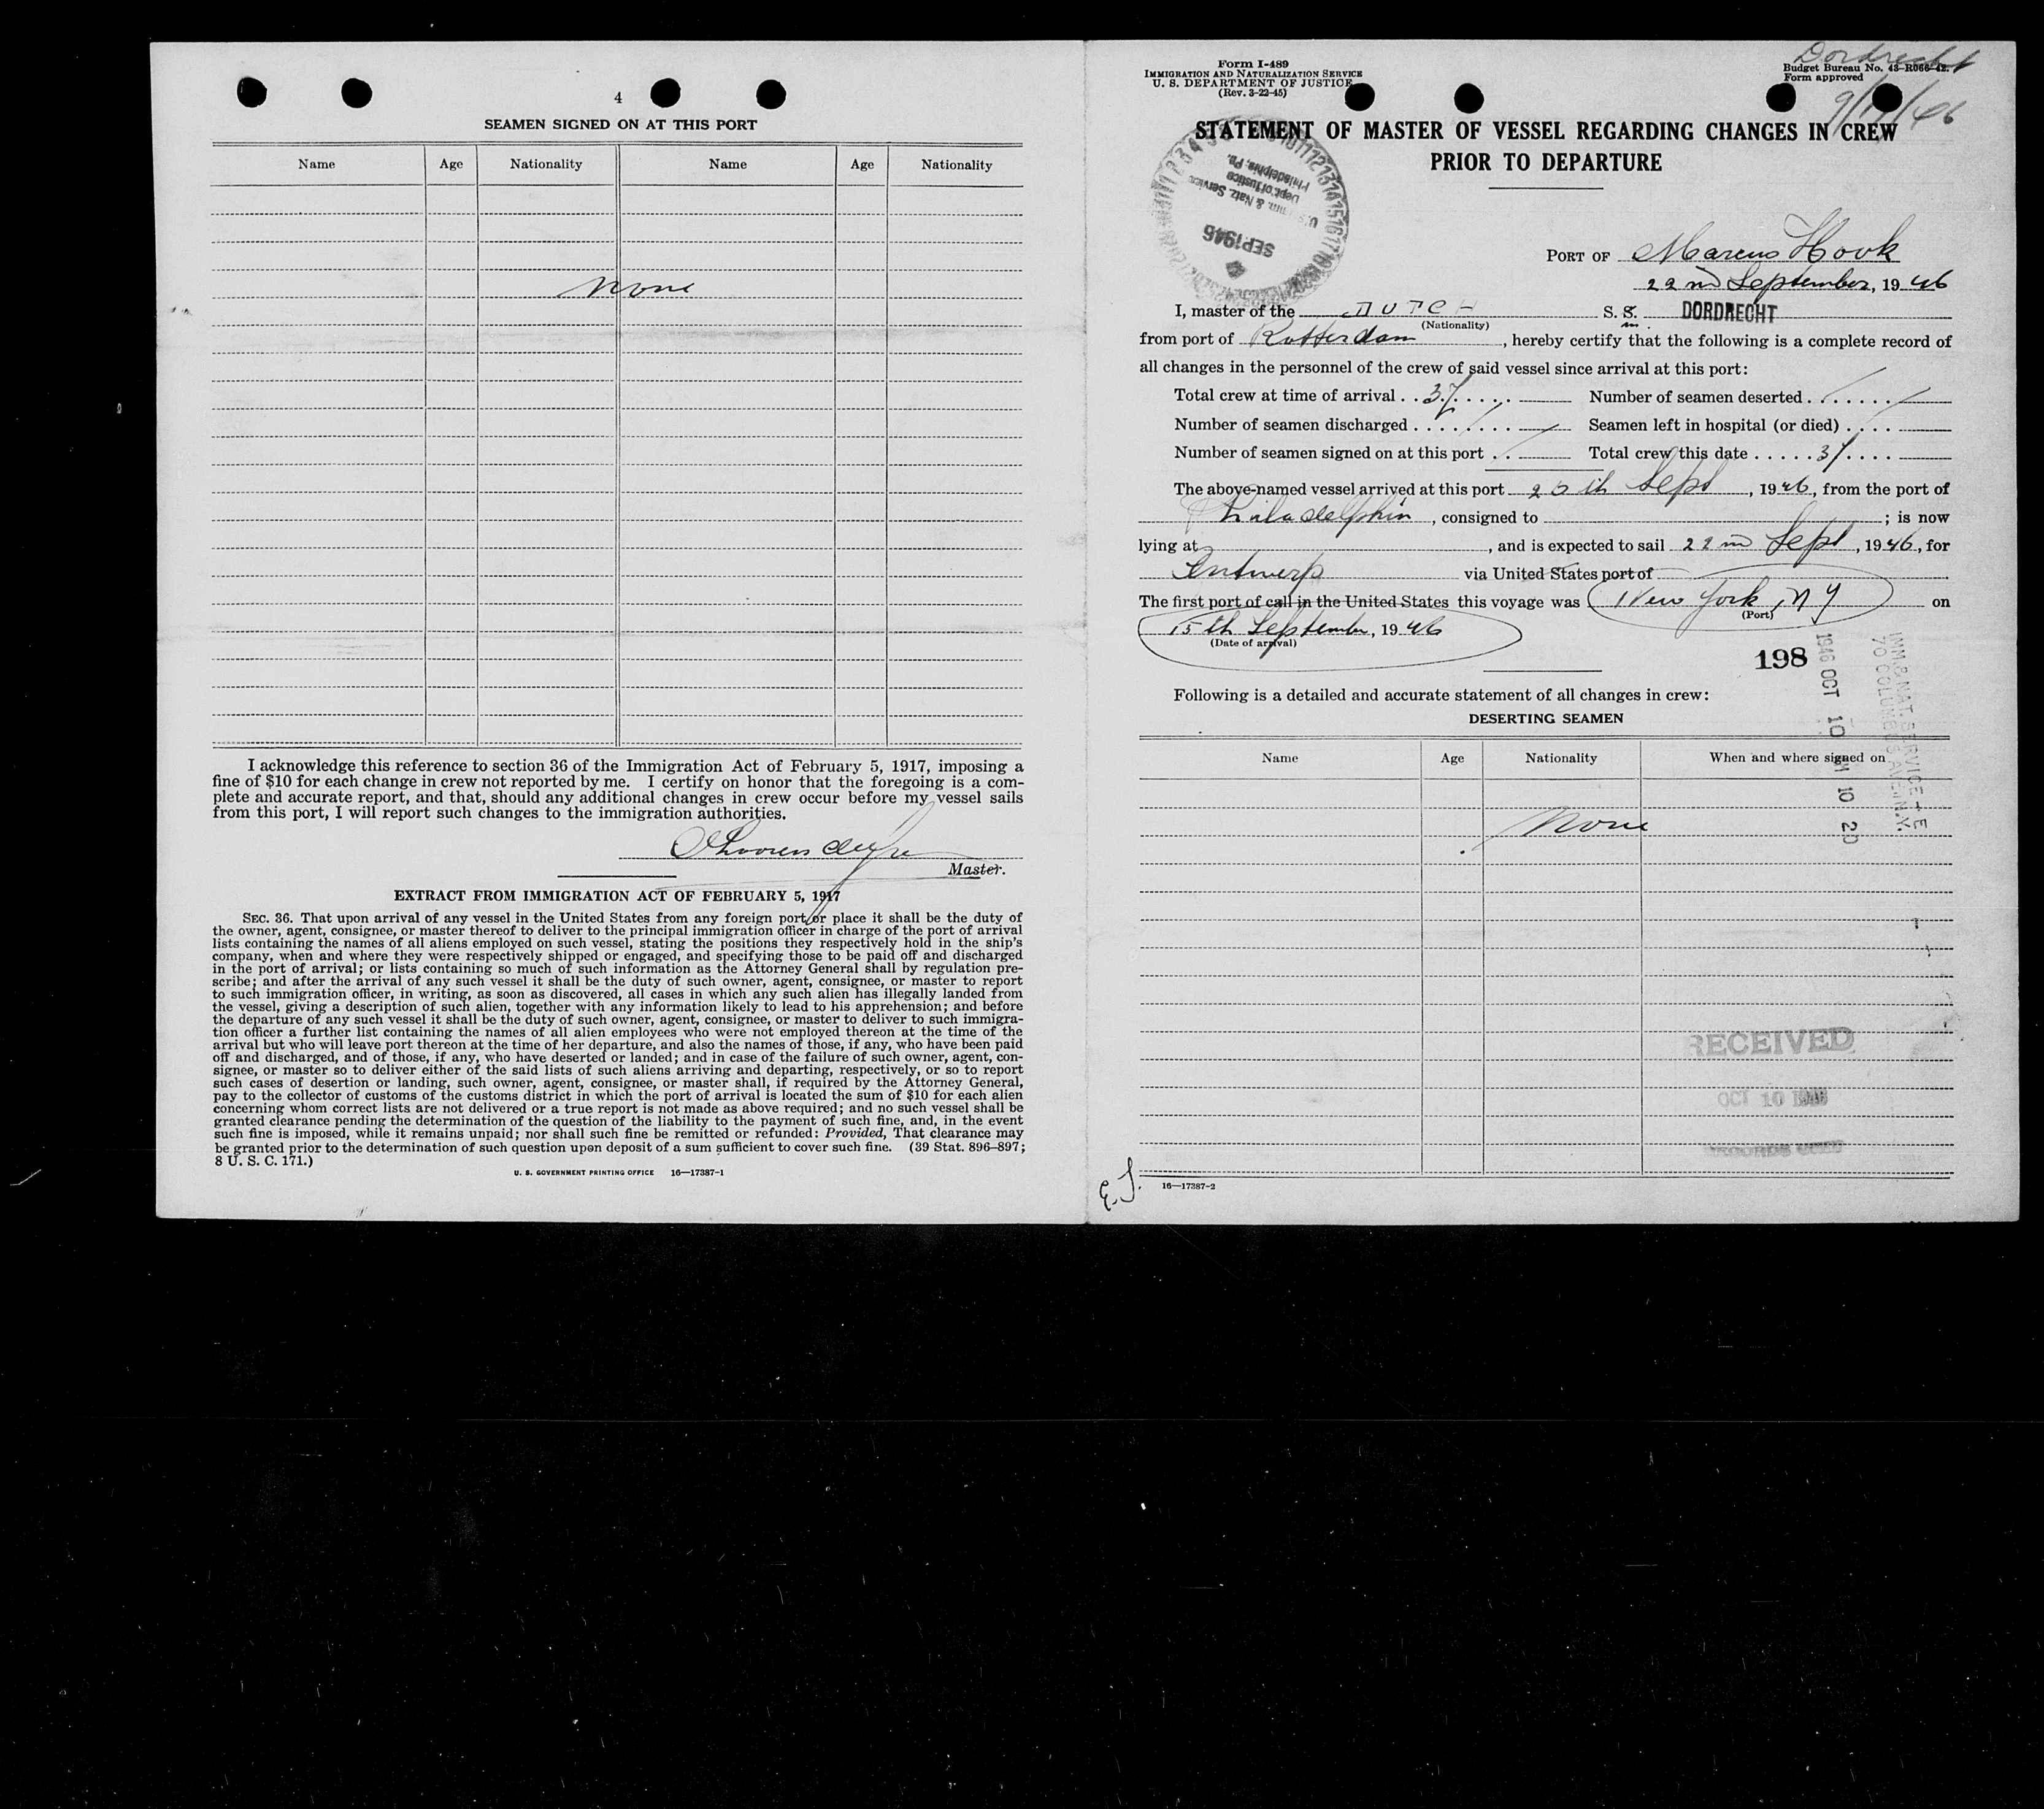 4
SEAMEN SIGNED ON AT THIS PORT
Name Age Nationality Name Age Nationality
None
I acknowledge this reference to section 36 of the Immigration Act of February 5, 1917, imposing a
fine of $10 for each change in crew not reported by me. I certify on honor that the foregoing is a com-
plete and accurate report, and that, should any additional changes in crew occur before my vessel sails
from this port, I will report such changes to the immigration authorities.
Master.
EXTRACT FROM IMMIGRATION ACT OF FEBRUARY 5, 1917
SEC. 36. That upon arrival of any vessel in the United States from any foreign port or place it shall be the duty of
the owner, agent, consignee, or master thereof to deliver to the principal immigration officer in charge of the port of arrival
lists containing the names of all aliens employed on such vessel, stating the positions they respectively hold in the ship's
company, when and where they were respectively shipped or engaged, and specifying those to be paid off and discharged
in the port of arrival; or lists containing so much of such information as the Attorney General shall by regulation pre-
scribe; and after the arrival of any such vessel it shall be the duty of such owner, agent, consignee, or master to report
to such immigration officer, in writing, as soon as discovered, all cases in which any such alien has illegally landed from
the vessel, giving a description of such alien, together with any information likely to lead to his apprehension; and before
the departure of any such vessel it shall be the duty of such owner, agent, consignee, or master to deliver to such immigra-
tion officer a further list containing the names of all alien employees who were not employed thereon at the time of the
arrival but who will leave port thereon at the time of her departure, and also the names of those, if any, who have been paid
off and discharged, and of those, if any, who have deserted or landed; and in case of the failure of such owner, agent, con-
signee, or master so to deliver either of the said lists of such aliens arriving and departing, respectively, or so to report
such cases of desertion or landing, such owner, agent, consignee, or master shall, if required by the Attorney General,
pay to the collector of customs of the customs district in which the port of arrival is located the sum of $10 for each alien
concerning whom correct lists are not delivered or a true report is not made as above required; and no such vessel shall be
granted clearance pending the determination of the question of the liability to the payment of such fine, and, in the event
such fine is imposed, while it remains unpaid; nor shall such fine be remitted or refunded: Provided, That clearance may
be granted prior to the determination of such question upon deposit of a sum sufficient to cover such fine. (39 Stat. 896–897;
8 U. S. C. 171.)
U. S. GOVERNMENT PRINTING OFFICE 16—17387-1
Form I-489
IMMIGRATION AND NATURALIZATION SERVICE
U. S. DEPARTMENT OF JUSTICE
(Rev. 3-22-45)
Dordrecht
Budget Bureau No. 43-R066-42.
Form approved
STATEMENT OF MASTER OF VESSEL REGARDING CHANGES IN CREW
PRIOR TO DEPARTURE
U.S. Imm. & Natz. Service
Dept. of Justice
Philadelphia, Pa.
SEP 1946
PORT OF Marcus Hook
22nd September, 1946
I, master of the DUTCH S. S. DORDRECHT
(Nationality) m.
from port of Rotterdam, hereby certify that the following is a complete record of
all changes in the personnel of the crew of said vessel since arrival at this port:
Total crew at time of arrival . . 37 . . . . . Number of seamen deserted . . . . . . . /
Number of seamen discharged . . . . . . . . / Seamen left in hospital (or died) . . . .
Number of seamen signed on at this port . . / Total crew this date . . . . . 37 . . . .
The above-named vessel arrived at this port 20th Sept, 1946, from the port of
Philadelphia, consigned to ; is now
lying at , and is expected to sail 22nd Sept, 1946, for
Antwerp via United States port of
The first port of call in the United States this voyage was New York, NY on
(Port)
15th September, 1946
(Date of arrival)
198
1946 OCT 10 AM 10 20
IMM. & NAT. SERVICE
70 COLUMBUS AVE. N.Y.
Following is a detailed and accurate statement of all changes in crew:
DESERTING SEAMEN
Name Age Nationality When and where signed on
None
RECEIVED
OCT 10 1946
E.J.
16—17387-2